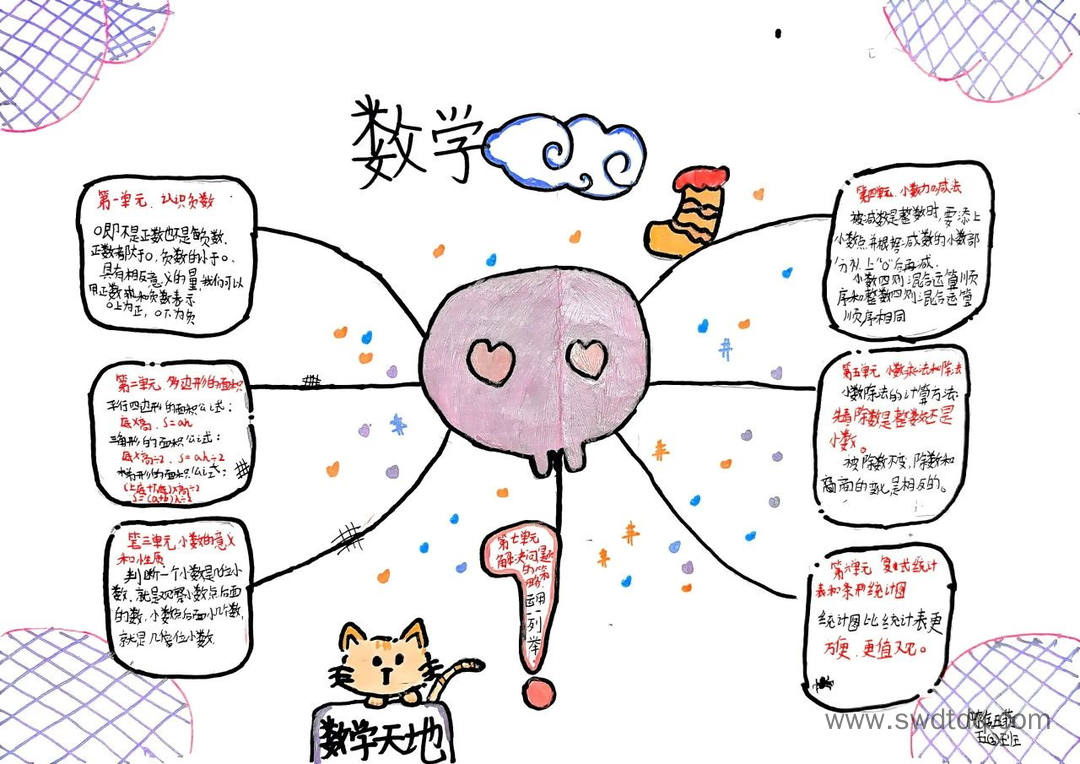 数学
第一单元、认识负数
0即不是正数也不是负数、
正数都大于0,负数的小于0.
具有相反意义的量我们可以
用正数和负数表示
0上为正,0下为负
第二单元 多边形的面积
平行四边形的面积公式:
底×高、S=ah
三角形的面积公式:
底×高÷2、S=ah÷2
梯形的面积公式:
(上底+下底)×高÷2
S=(a+b)h÷2
第三单元、小数的意义
和性质
判断一个小数是几位小
数,就是观察小数点后面
的数,小数点后面小几数,
就是几位小数.
第四单元、小数加减法
被减数是整数时,要添上
小数点并根据减数的小数部
分补上"0"后再减.
小数四则混合运算顺
序和整数四则混合运算
顺序相同
第五单元 小数乘法和除法
小数除法的计算方法:
先看除数是整数还是
小数。
被除数不变,除数和
商的变化是相反的。
第六单元 复式统计
表和条形统计图
统计图比统计表更
方便、更直观。
第七单元
解决问题
的策
略
运用
一
列
举
数学天地
五(四)班
www.swdtdq.com